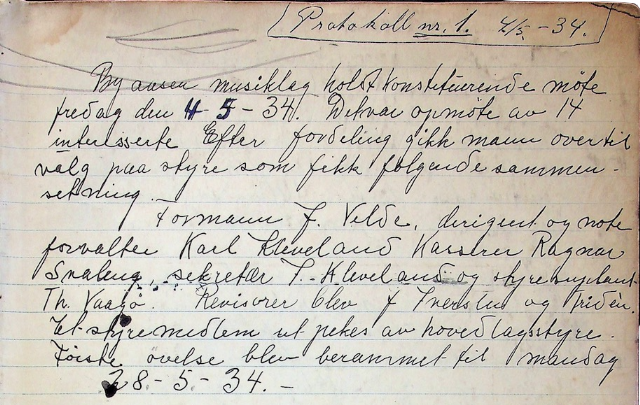 Protokoll nr. 1. 4/5 - 34.
Byaasen musiklag holdt konstituerende møte
fredag den 4 - 5 - 34. Det var opmøte av 14
interesserte Efter fordeling gikk mann over til
valg paa styre som fikk følgende sammen-
setning.
Formann J. Velde, dirigent og note
forvalter Karl Kleveland Kasserer Ragnar
sekretær Kleveland og styresuplant
Th. Revisorer blev J Iverslun og
Et styremedlem utpekes av hovedlagsstyre.
Første øvelse blev berammet til mandag
28 - 5 - 34. -